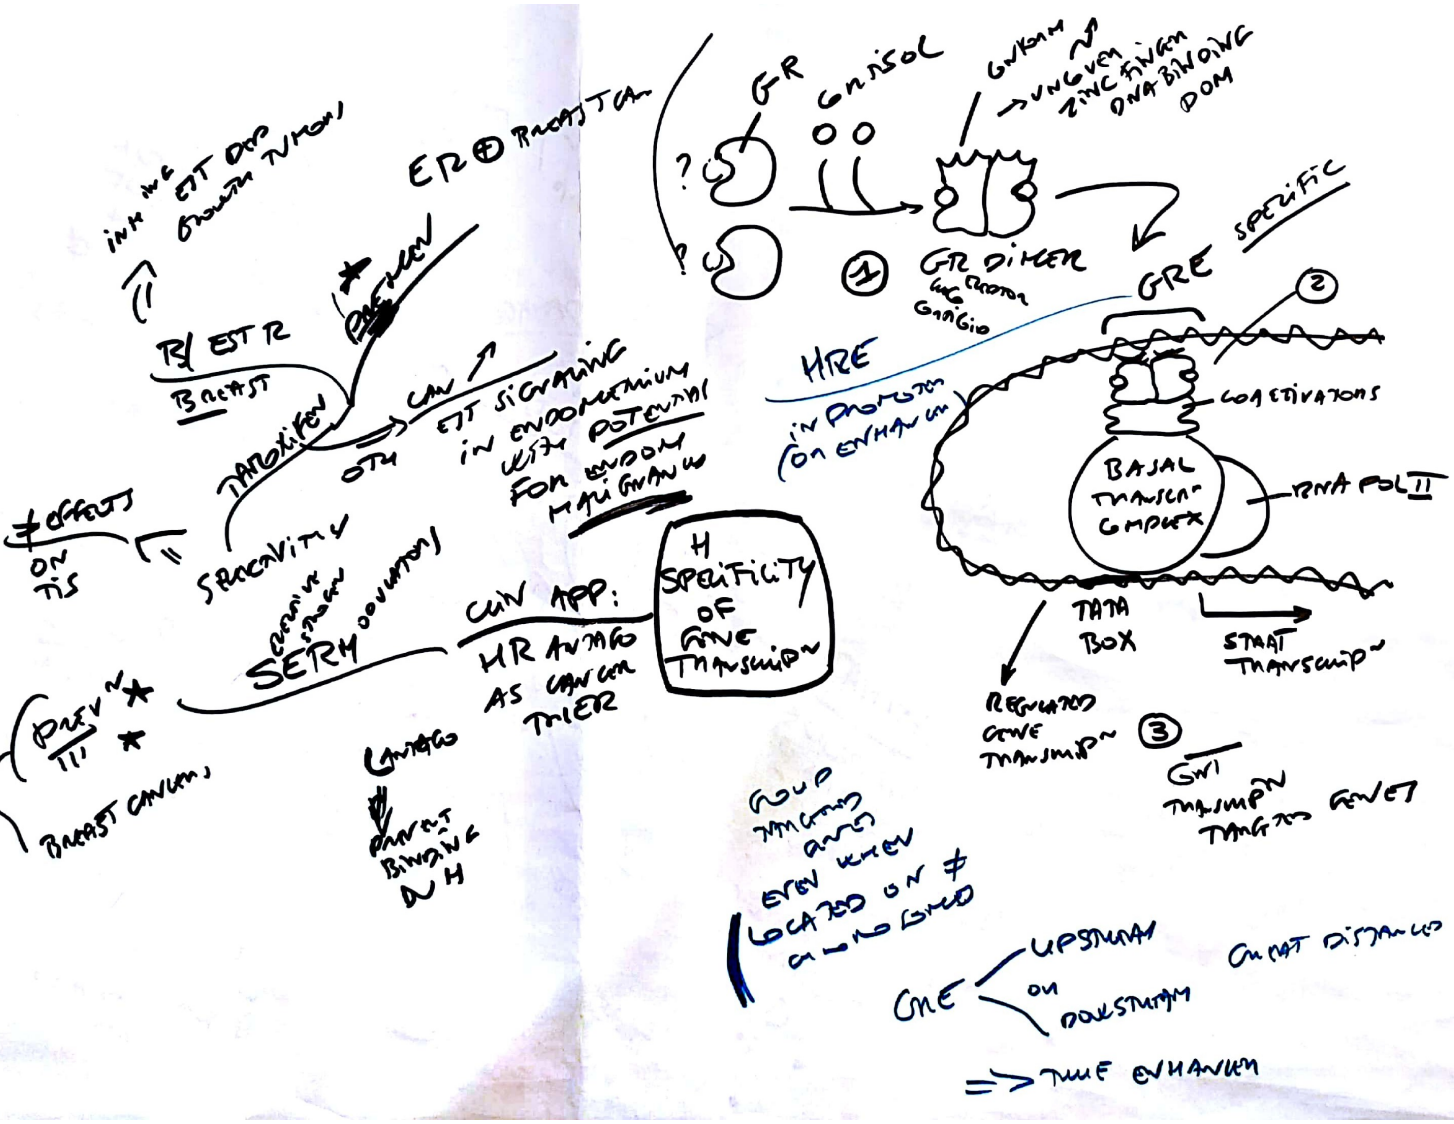 ER ⊕ BREAST CAN
INH ING
EST DEP
GROWTH TUMORS
B/ EST R
BREAST
TAMOXIFEN
OTH
CAN ↗
EST SIGNALING
IN ENDOMETRIUM
WITH POTENTIAL
FOR ENDOM
MALIGNANCIES
≠ EFFECTS
ON
TIS
SELECTIVITY
SELECTIVE
ESTROGEN
SERM ODULATORS
PREV~ ★
★
BREAST CANCERS
CLIN APP:
HR ANTAGO
AS CANCER
THER
ANTAGO
PREVENT
BINDING
H
SPECIFICITY
OF
GENE
TRANSCRIP~
GR
CORTISOL
?
?
→ UNCOVER
ZINC FINGER
DNA BINDING
DOM
1
GR DIMER
GRE SPECIFIC
2
HRE
IN PROMOTER
(OR ENHANCER)
COACTIVATORS
BASAL
TRANSCR~
COMPLEX
RNA POL II
TATA
BOX
START
TRANSCRIP~
REGULATED
GENE
TRANSCRIP~
3
TRANSCRIP~
TARGETED GENES
GROUP
TARGETED
GENES
EVEN WHEN
LOCATED ON ≠
CHROMOSOMES
GRE
UPSTREAM
OR
DOWNSTREAM
GREAT DISTANCES
=> TRUE ENHANCER